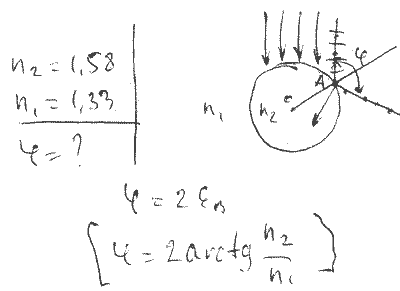 n₂ = 1,58
n₁ = 1,33
φ = ?
n₁
n₂
A
φ
φ = 2 ε_B
[φ = 2 arctg n₂/n₁]